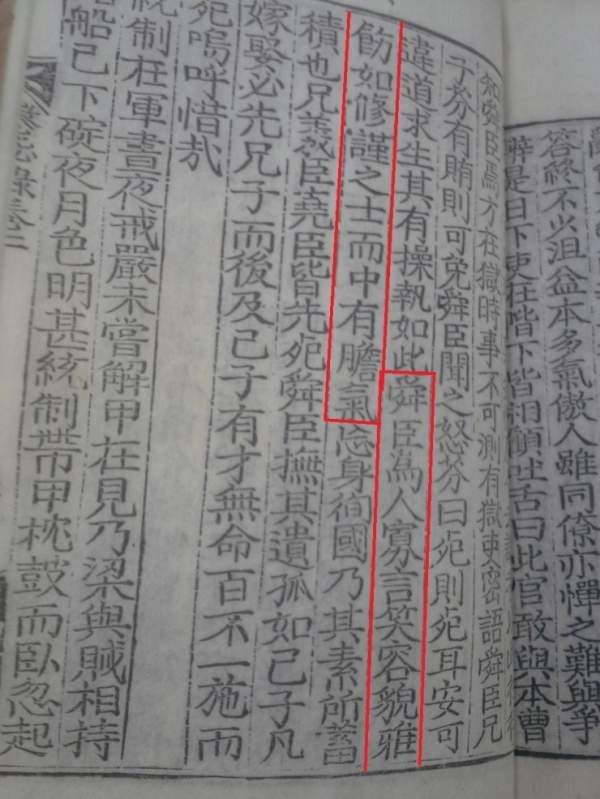 答終不少沮益本多氣傲人雖同僚亦憚之難與爭
辨是日下吏在階下皆相顧吐舌曰此官敢與本曹
知舜臣焉方在獄時事不可測有獄吏密語舜臣兄
子芬有賄則可免舜臣聞之怒芬曰死則死耳安可
違道求生其有操執如此舜臣爲人寡言笑容貌雅
飭如修謹之士而中有膽氣忘身徇國乃其素所蓄
積也兄羲臣堯臣皆先死舜臣撫其遺孤如己子凡
嫁娶必先兄子而後及己子有才無命百不一施而
死嗚呼惜哉
統制在軍晝夜戒嚴未嘗解甲在見乃梁與賊相持
船已下碇夜月色明甚統制帶甲枕鼓而臥忽起
懲毖錄卷二